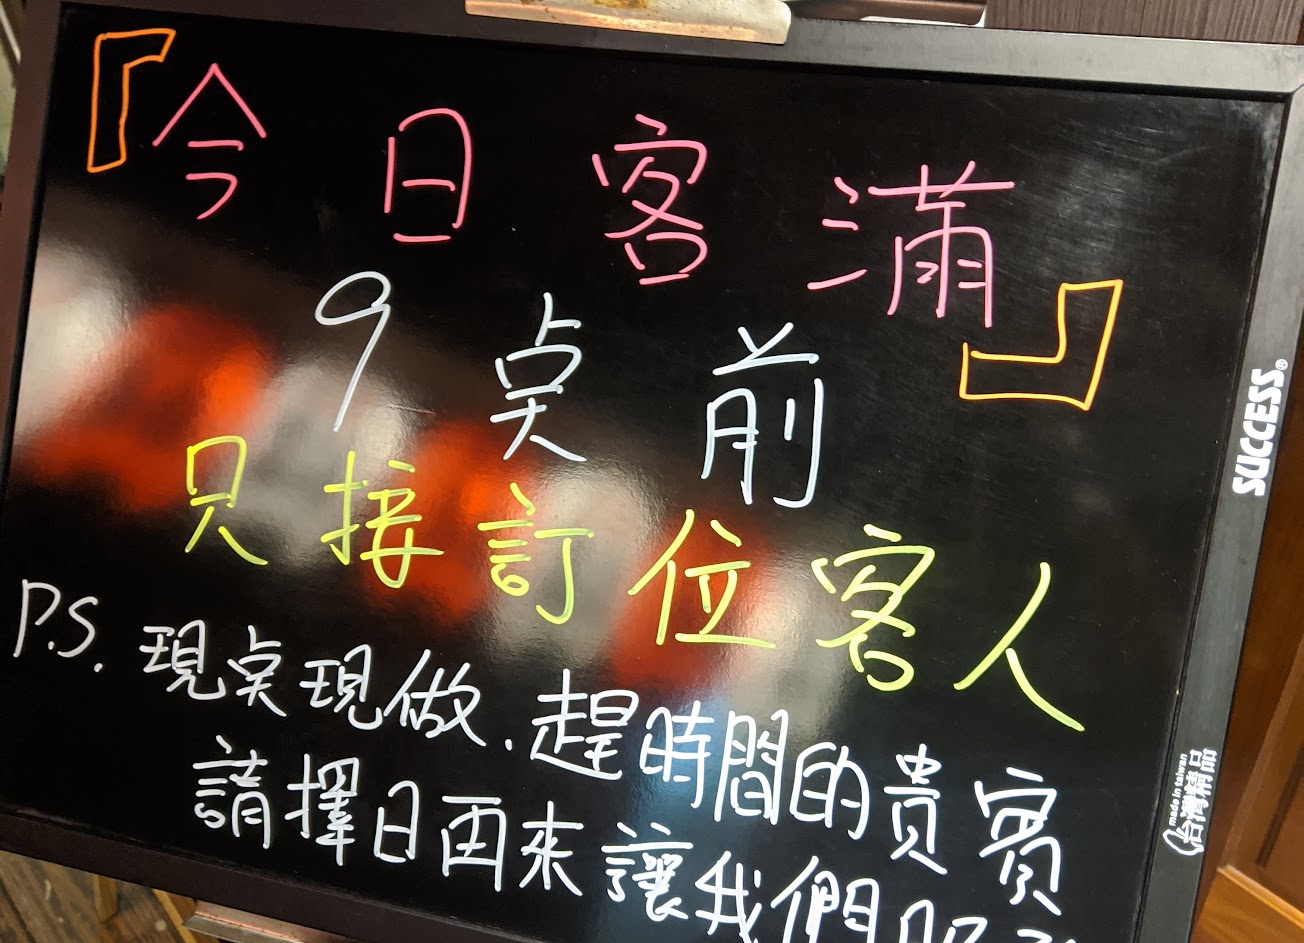 『今日客滿』
9点前
只接訂位客人
P.S. 現点現做.趕時間的貴賓
請擇日再來讓我們服
SUCCESS®
made in taiwan
台灣精品